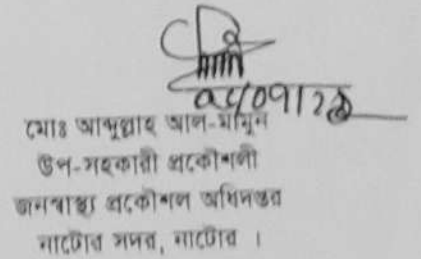 মোঃ আব্দুল্লাহ আল-মামুন
উপ-সহকারী প্রকৌশলী
জনস্বাস্থ্য প্রকৌশল অধিদপ্তর
নাটোর সদর, নাটোর ।